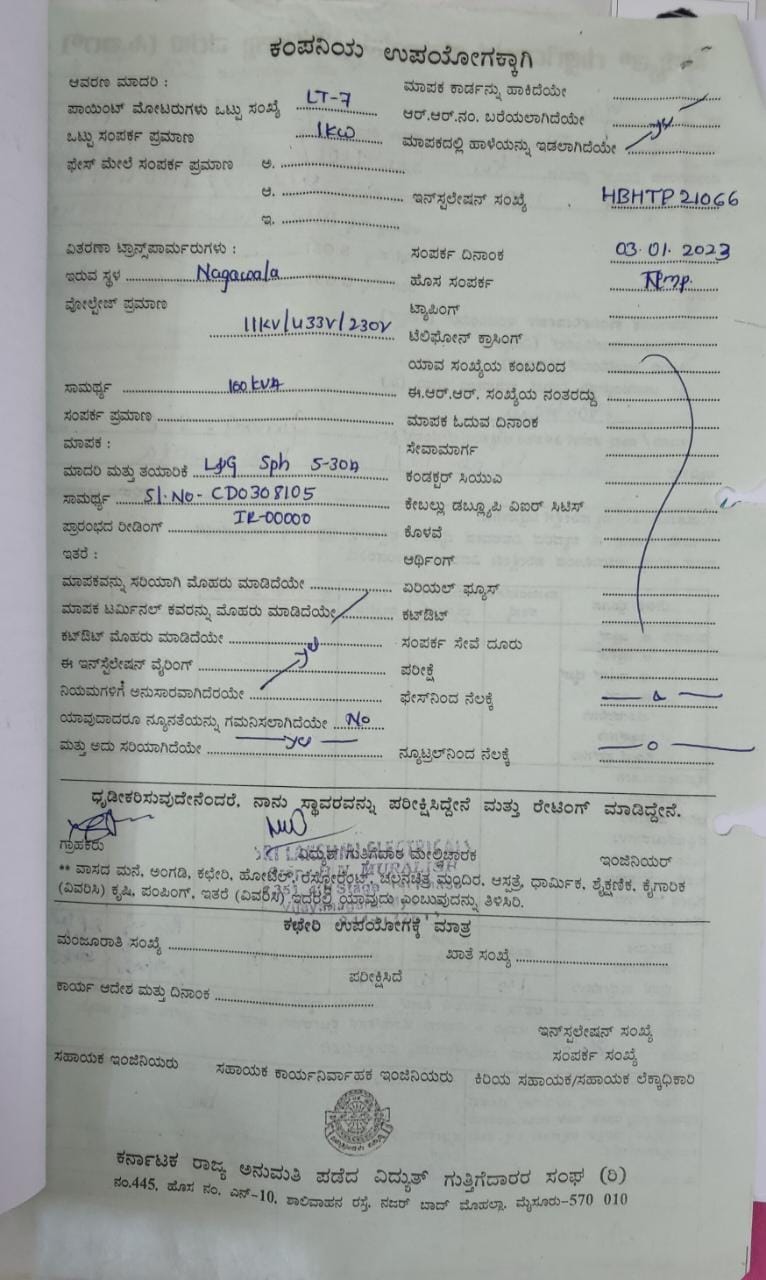 ಕಂಪನಿಯ ಉಪಯೋಗಕ್ಕಾಗಿ
ಆವರಣ ಮಾದರಿ :
ಪಾಯಿಂಟ್ ಮೋಟರುಗಳು ಒಟ್ಟು ಸಂಖ್ಯೆ LT-7
ಒಟ್ಟು ಸಂಪರ್ಕ ಪ್ರಮಾಣ 1KW
ಫೇಸ್ ಮೇಲೆ ಸಂಪರ್ಕ ಪ್ರಮಾಣ ಅ.
ಆ.
ಇ.
ವಿತರಣಾ ಟ್ರಾನ್ಸ್‌ಪಾರ್ಮರುಗಳು :
ಇರುವ ಸ್ಥಳ Nagawala
ವೋಲ್ಟೇಜ್ ಪ್ರಮಾಣ
11KV/433V/230V
ಸಾಮರ್ಥ್ಯ 100 KVA
ಸಂಪರ್ಕ ಪ್ರಮಾಣ
ಮಾಪಕ :
ಮಾದರಿ ಮತ್ತು ತಯಾರಿಕೆ L&G Sph 5-30A
ಸಾಮರ್ಥ್ಯ Sl.No- CD0308105
ಪ್ರಾರಂಭದ ರೀಡಿಂಗ್ IR-00000
ಇತರೆ :
ಮಾಪಕವನ್ನು ಸರಿಯಾಗಿ ಮೊಹರು ಮಾಡಿದೆಯೇ
ಮಾಪಕ ಟರ್ಮಿನಲ್ ಕವರನ್ನು ಮೊಹರು ಮಾಡಿದೆಯೇ
ಕಟ್‌ಔಟ್ ಮೊಹರು ಮಾಡಿದೆಯೇ
ಈ ಇನ್‌ಸ್ಟೆಲೇಷನ್ ವೈರಿಂಗ್
ನಿಯಮಗಳಿಗೆ ಅನುಸಾರವಾಗಿದೆರಯೇ
ಯಾವುದಾದರೂ ನ್ಯೂನತೆಯನ್ನು ಗಮನಿಸಲಾಗಿದೆಯೇ No
ಮತ್ತು ಅದು ಸರಿಯಾಗಿದೆಯೇ
ಮಾಪಕ ಕಾರ್ಡನ್ನು ಹಾಕಿದೆಯೇ
ಆರ್.ಆರ್.ನಂ. ಬರೆಯಲಾಗಿದೆಯೇ
ಮಾಪಕದಲ್ಲಿ ಹಾಳೆಯನ್ನು ಇಡಲಾಗಿದೆಯೇ
ಇನ್‌ಸ್ಟಲೇಷನ್ ಸಂಖ್ಯೆ HBHTP 21066
ಸಂಪರ್ಕ ದಿನಾಂಕ 03.01.2023
ಹೊಸ ಸಂಪರ್ಕ
ಟ್ಯಾಪಿಂಗ್
ಟೆಲಿಫೋನ್ ಕ್ರಾಸಿಂಗ್
ಯಾವ ಸಂಖ್ಯೆಯ ಕಂಬದಿಂದ
ಈ.ಆರ್.ಆರ್. ಸಂಖ್ಯೆಯ ನಂತರದ್ದು
ಮಾಪಕ ಓದುವ ದಿನಾಂಕ
ಸೇವಾಮಾರ್ಗ
ಕಂಡಕ್ಟರ್ ಸಿಯುಎ
ಕೇಬಲ್ಲು ಡಬ್ಲ್ಯೂಪಿ ವಿಐಆರ್ ಸಿಟಿಸ್
ಕೊಳವೆ
ಅರ್ಥಿಂಗ್
ಏರಿಯಲ್ ಫ್ಯೂಸ್
ಕಟ್‌ಔಟ್
ಸಂಪರ್ಕ ಸೇವೆ ದೂರು
ಪರೀಕ್ಷೆ
ಫೇಸ್‌ನಿಂದ ನೆಲಕ್ಕೆ
ನ್ಯೂಟ್ರಲ್‌ನಿಂದ ನೆಲಕ್ಕೆ
ಧೃಡೀಕರಿಸುವುದೇನೆಂದರೆ, ನಾನು ಸ್ಥಾವರವನ್ನು ಪರೀಕ್ಷಿಸಿದ್ದೇನೆ ಮತ್ತು ರೇಟಿಂಗ್ ಮಾಡಿದ್ದೇನೆ.
ಗ್ರಾಹಕರು ವಿದ್ಯುತ್ ಗುತ್ತಿಗೆದಾರ ಮೇಲ್ವಿಚಾರಕ ಇಂಜಿನಿಯರ್
** ವಾಸದ ಮನೆ, ಅಂಗಡಿ, ಕಛೇರಿ, ಹೋಟೆಲ್, ರೆಸ್ಟೋರೆಂಟ್, ಚಲನಚಿತ್ರ ಮಂದಿರ, ಆಸ್ಪತ್ರೆ, ಧಾರ್ಮಿಕ, ಶೈಕ್ಷಣಿಕ, ಕೈಗಾರಿಕ
(ವಿವರಿಸಿ) ಕೃಷಿ, ಪಂಪಿಂಗ್, ಇತರೆ (ವಿವರಿಸಿ) ಇದರಲ್ಲಿ ಯಾವುದು ಎಂಬುವುದನ್ನು ತಿಳಿಸಿರಿ.
ಕಛೇರಿ ಉಪಯೋಗಕ್ಕೆ ಮಾತ್ರ
ಮಂಜೂರಾತಿ ಸಂಖ್ಯೆ ಖಾತೆ ಸಂಖ್ಯೆ
ಪರೀಕ್ಷಿಸಿದೆ
ಕಾರ್ಯ ಆದೇಶ ಮತ್ತು ದಿನಾಂಕ
ಇನ್‌ಸ್ಟಲೇಷನ್ ಸಂಖ್ಯೆ
ಸಂಪರ್ಕ ಸಂಖ್ಯೆ
ಸಹಾಯಕ ಇಂಜಿನಿಯರು ಸಹಾಯಕ ಕಾರ್ಯನಿರ್ವಾಹಕ ಇಂಜಿನಿಯರು ಕಿರಿಯ ಸಹಾಯಕ/ಸಹಾಯಕ ಲೆಕ್ಕಾಧಿಕಾರಿ
ಕರ್ನಾಟಕ ರಾಜ್ಯ ಅನುಮತಿ ಪಡೆದ ವಿದ್ಯುತ್ ಗುತ್ತಿಗೆದಾರರ ಸಂಘ (ರಿ)
ನಂ.445, ಹೊಸ ನಂ. ಎನ್-10, ಶಾಲಿವಾಹನ ರಸ್ತೆ, ನಜರ್ ಬಾದ್ ಮೊಹಲ್ಲಾ, ಮೈಸೂರು-570 010